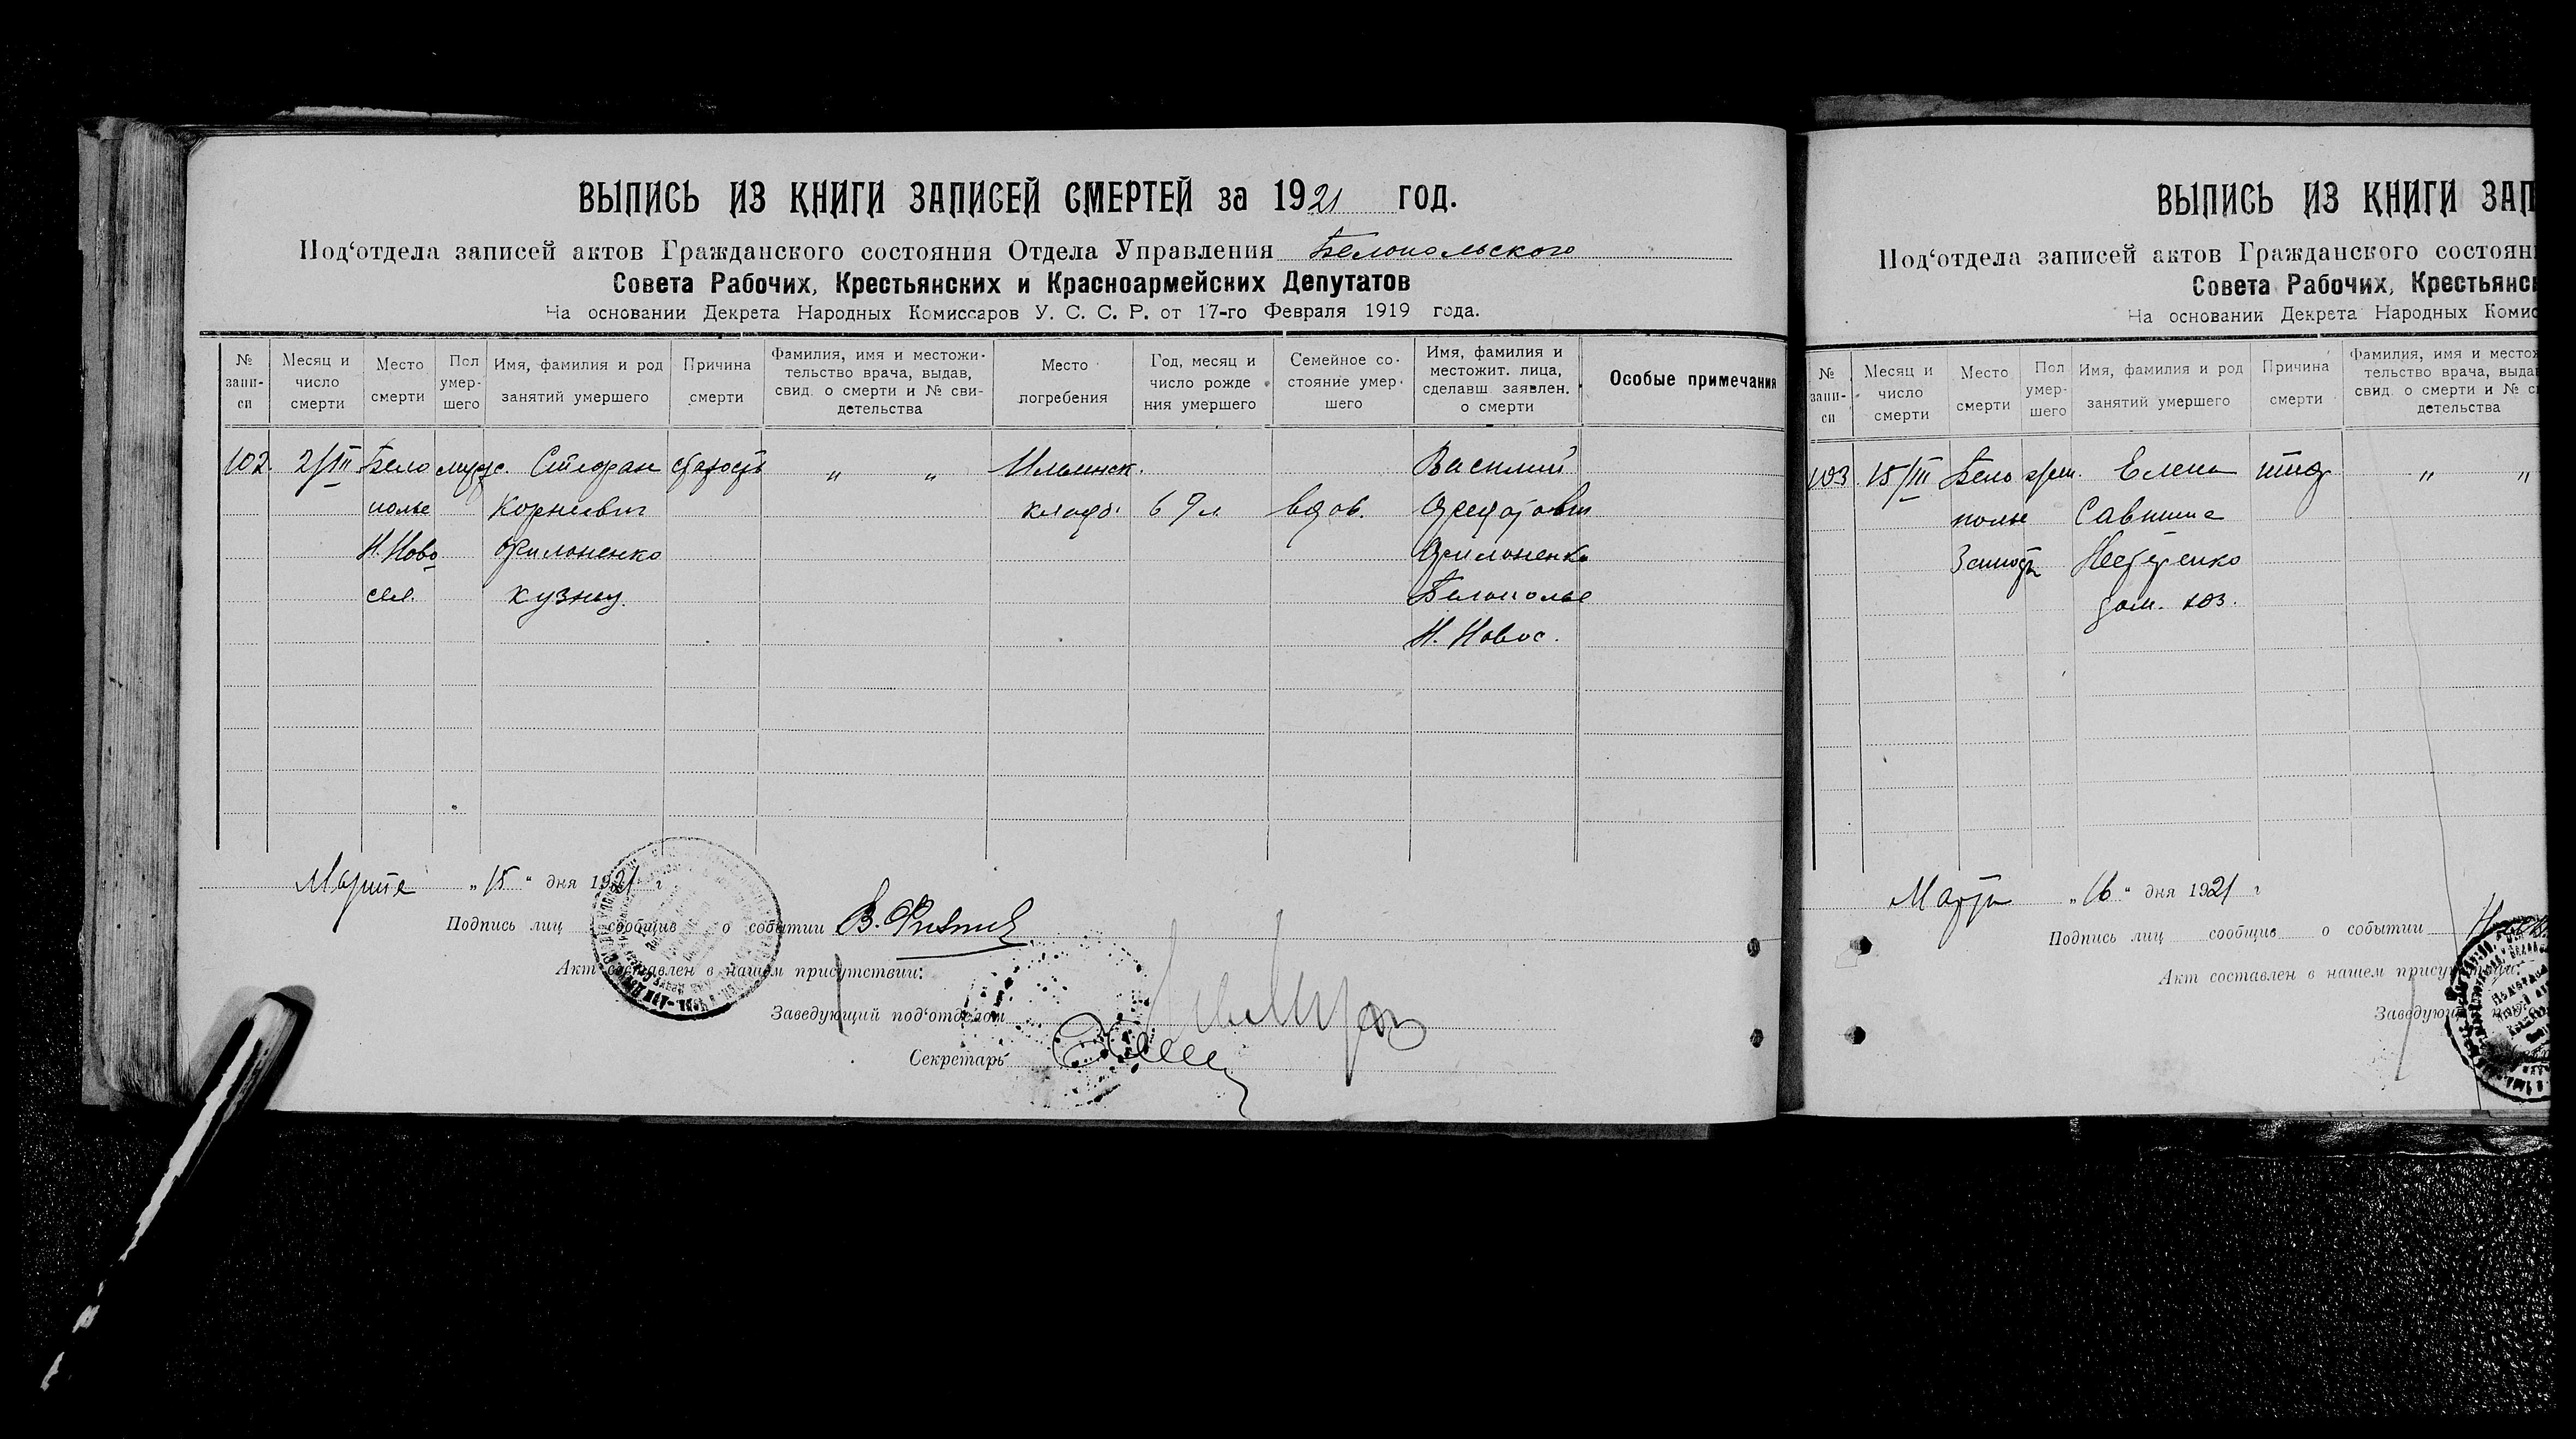 ВЫПИСЬ ИЗ КНИГИ ЗАПИСЕЙ СМЕРТЕЙ за 1921 год.
Под‘отдела записей актов Гражданского состояния Отдела Управления Белопольского
Совета Рабочих, Крестьянских и Красноармейских Депутатов
На основании Декрета Народных Комиссаров У. С. С. Р. от 17-го Февраля 1919 года.
№ запи-си
Месяц и число смерти
Место смерти
Пол умер-шего
Имя, фамилия и род занятий умершего
Причина смерти
Фамилия, имя и местожи-тельство врача, выдав, свид. о смерти и № сви-детельства
Место погребения
Год, месяц и число рожде ния умершего
Семейное со-стояние умер-шего
Имя, фамилия и местожит. лица, сделавш. заявлен. о смерти
Особые примечания
102. 2/III Бело мужс. Стефан старость „ „ Ильинск. Василий
полье Корниевич кладб. 67 л вдов.
Н. Ново Филоненко Филоненко
сел. кузнец. Белополье
Н. Новос.
Марта „15“ дня 1921 г
Подпись лиц сообщив о событии
Акт составлен в нашем присутствии:
Заведующий под‘отделом
Секретарь
ВЫПИСЬ ИЗ КНИГИ ЗАП
Под‘отдела записей актов Гражданского состоян
Совета Рабочих, Крестьянс
На основании Декрета Народных Комис
№ запи-си
Месяц и число смерти
Место смерти
Пол умер-шего
Имя, фамилия и род занятий умершего
Причина смерти
Фамилия, имя и место
тельство врача, выда
свид. о смерти и № с
детельства
103 15/III Бело жен. Елена тиф „ „
полье Саввишна
Нестеренко
дом. хоз.
Марта „16“ дня 1921 г
Подпись лиц сообщив о событии
Акт составлен в нашем
Заведующ